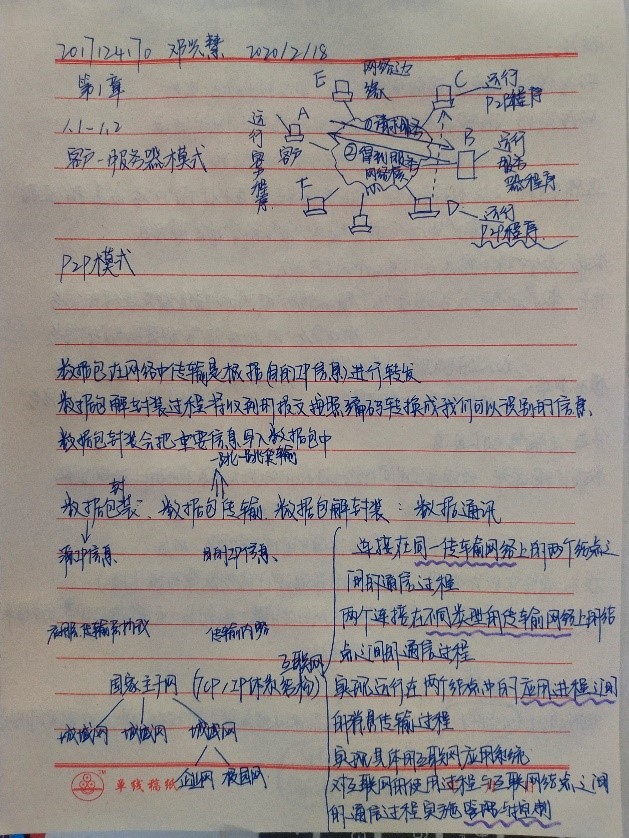 2017124170 邓 慧 2020/2/18
第1章
1.1-1.2
客户-服务器模式
E
网络边缘
C
运行
P2P程序
A
客户
运行客户程序
①请求服务
②得到服务
网络核心
B
运行
服务
器程序
F
D
运行
P2P程序
P2P模式
数据包在网络中传输是根据(目的IP信息)进行转发
数据包解封装过程将收到的报文按照编码转换成我们可以识别的信息
数据包封装会把重要信息写入数据包中
一跳一跳传输
数据包封装、数据包传输、数据包解封装:数据通讯
源IP信息、 目的IP信息、
传输协议 传输内容
互联网
国家主干网 (TCP/IP体系结构)
城域网 城域网 城域网
企业网 校园网
连接在同一传输网络上的两个结点之
间的通信过程
两个连接在不同类型的传输网络上的结
点之间的通信过程
实现运行在两个结点中的应用进程之间
的消息传输过程
实现具体的互联网应用系统
对互联网的使用过程与互联网结点之间
的通信过程实施监测与控制
单线稿纸